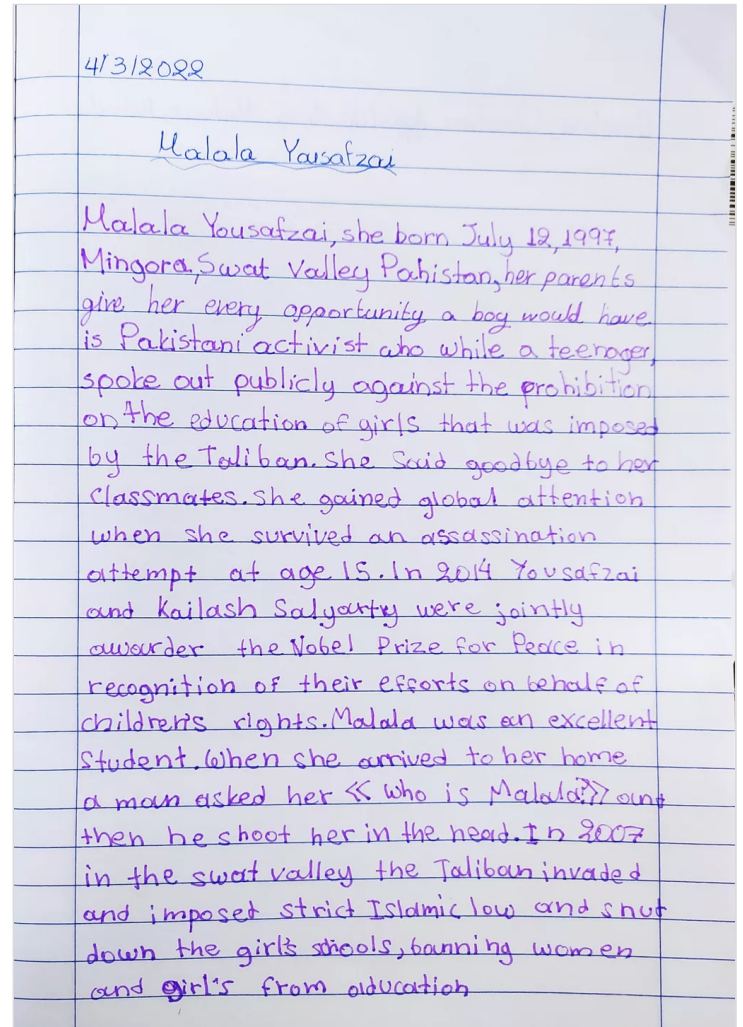 4/3/2022
Malala Yousafzai
Malala Yousafzai, she born July 12, 1997,
Mingora, Swat Valley Pahistan, her parents
give her every opportunity a boy would have
is Pakistani activist who while a teenager,
spoke out publicly against the prohibition
on the education of girls that was imposed
by the Taliban. She said goodbye to her
classmates. She gained global attention
when she survived an assassination
attempt at age 15. In 2014 Yousafzai
and Kailash Salyarty were jointly
awarder the Nobel Prize for Peace in
recognition of their efforts on behalf of
children's rights. Malala was an excellent
student. When she arrived to her home
a man asked her << who is Malala?>> and
then he shoot her in the head. In 2007
in the swat valley the Taliban invaded
and imposet strict Islamic low and shut
down the girl's schools, banning women
and girl's from aducation